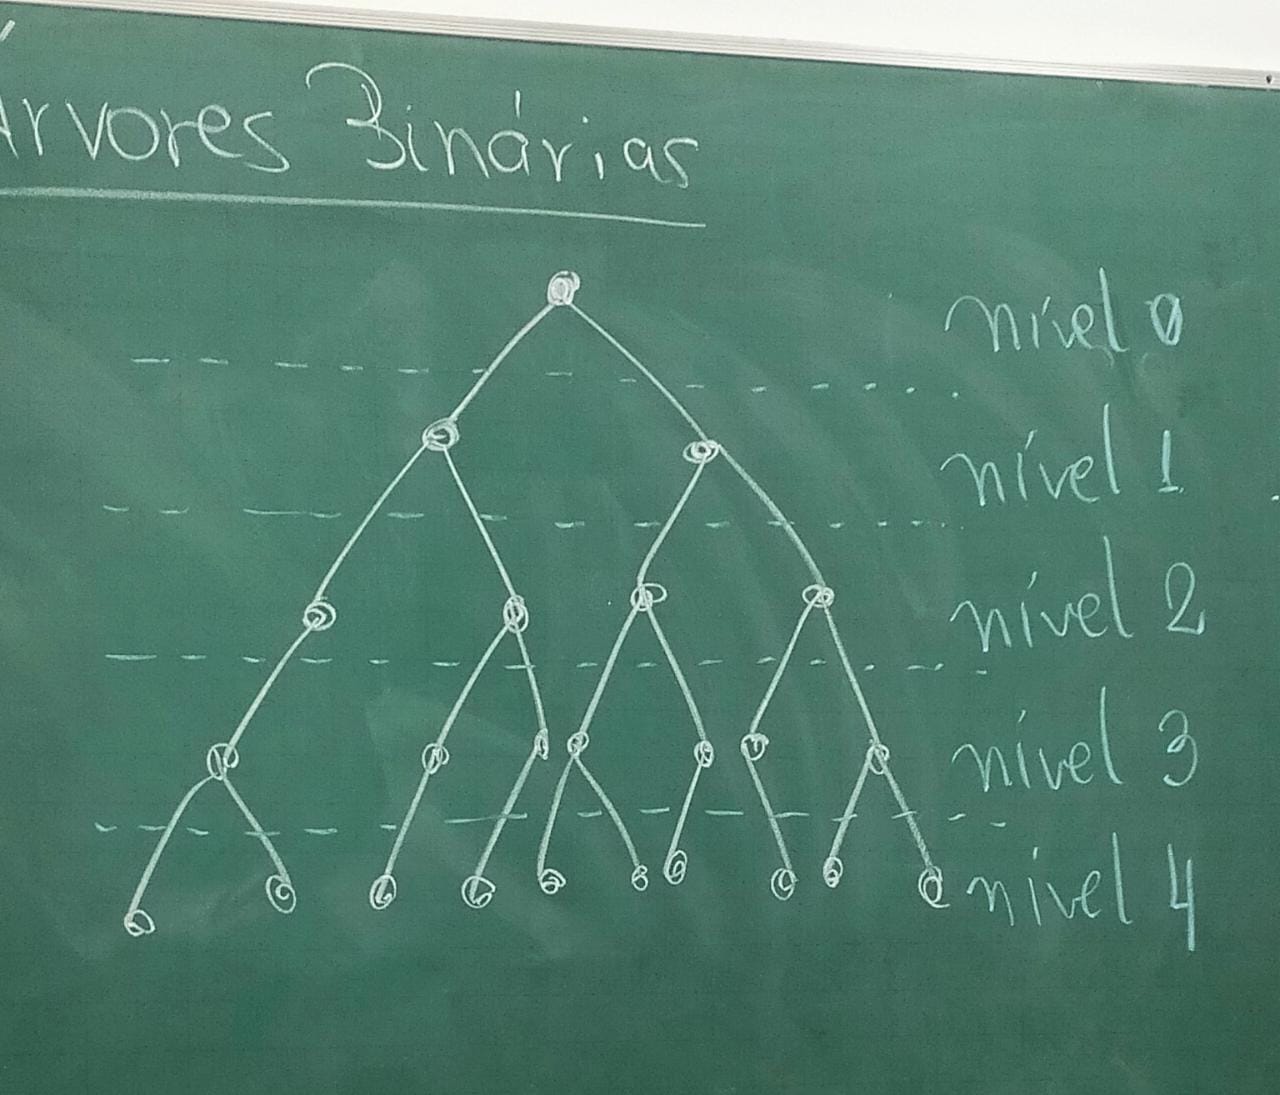 Árvores Binárias
nível 0
nível 1
nível 2
nível 3
nível 4